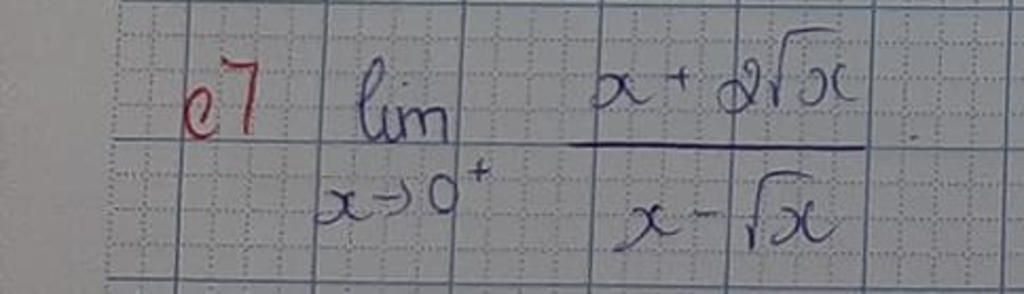 c7 lim x→0⁺ (x + 2√x)/(x - √x)